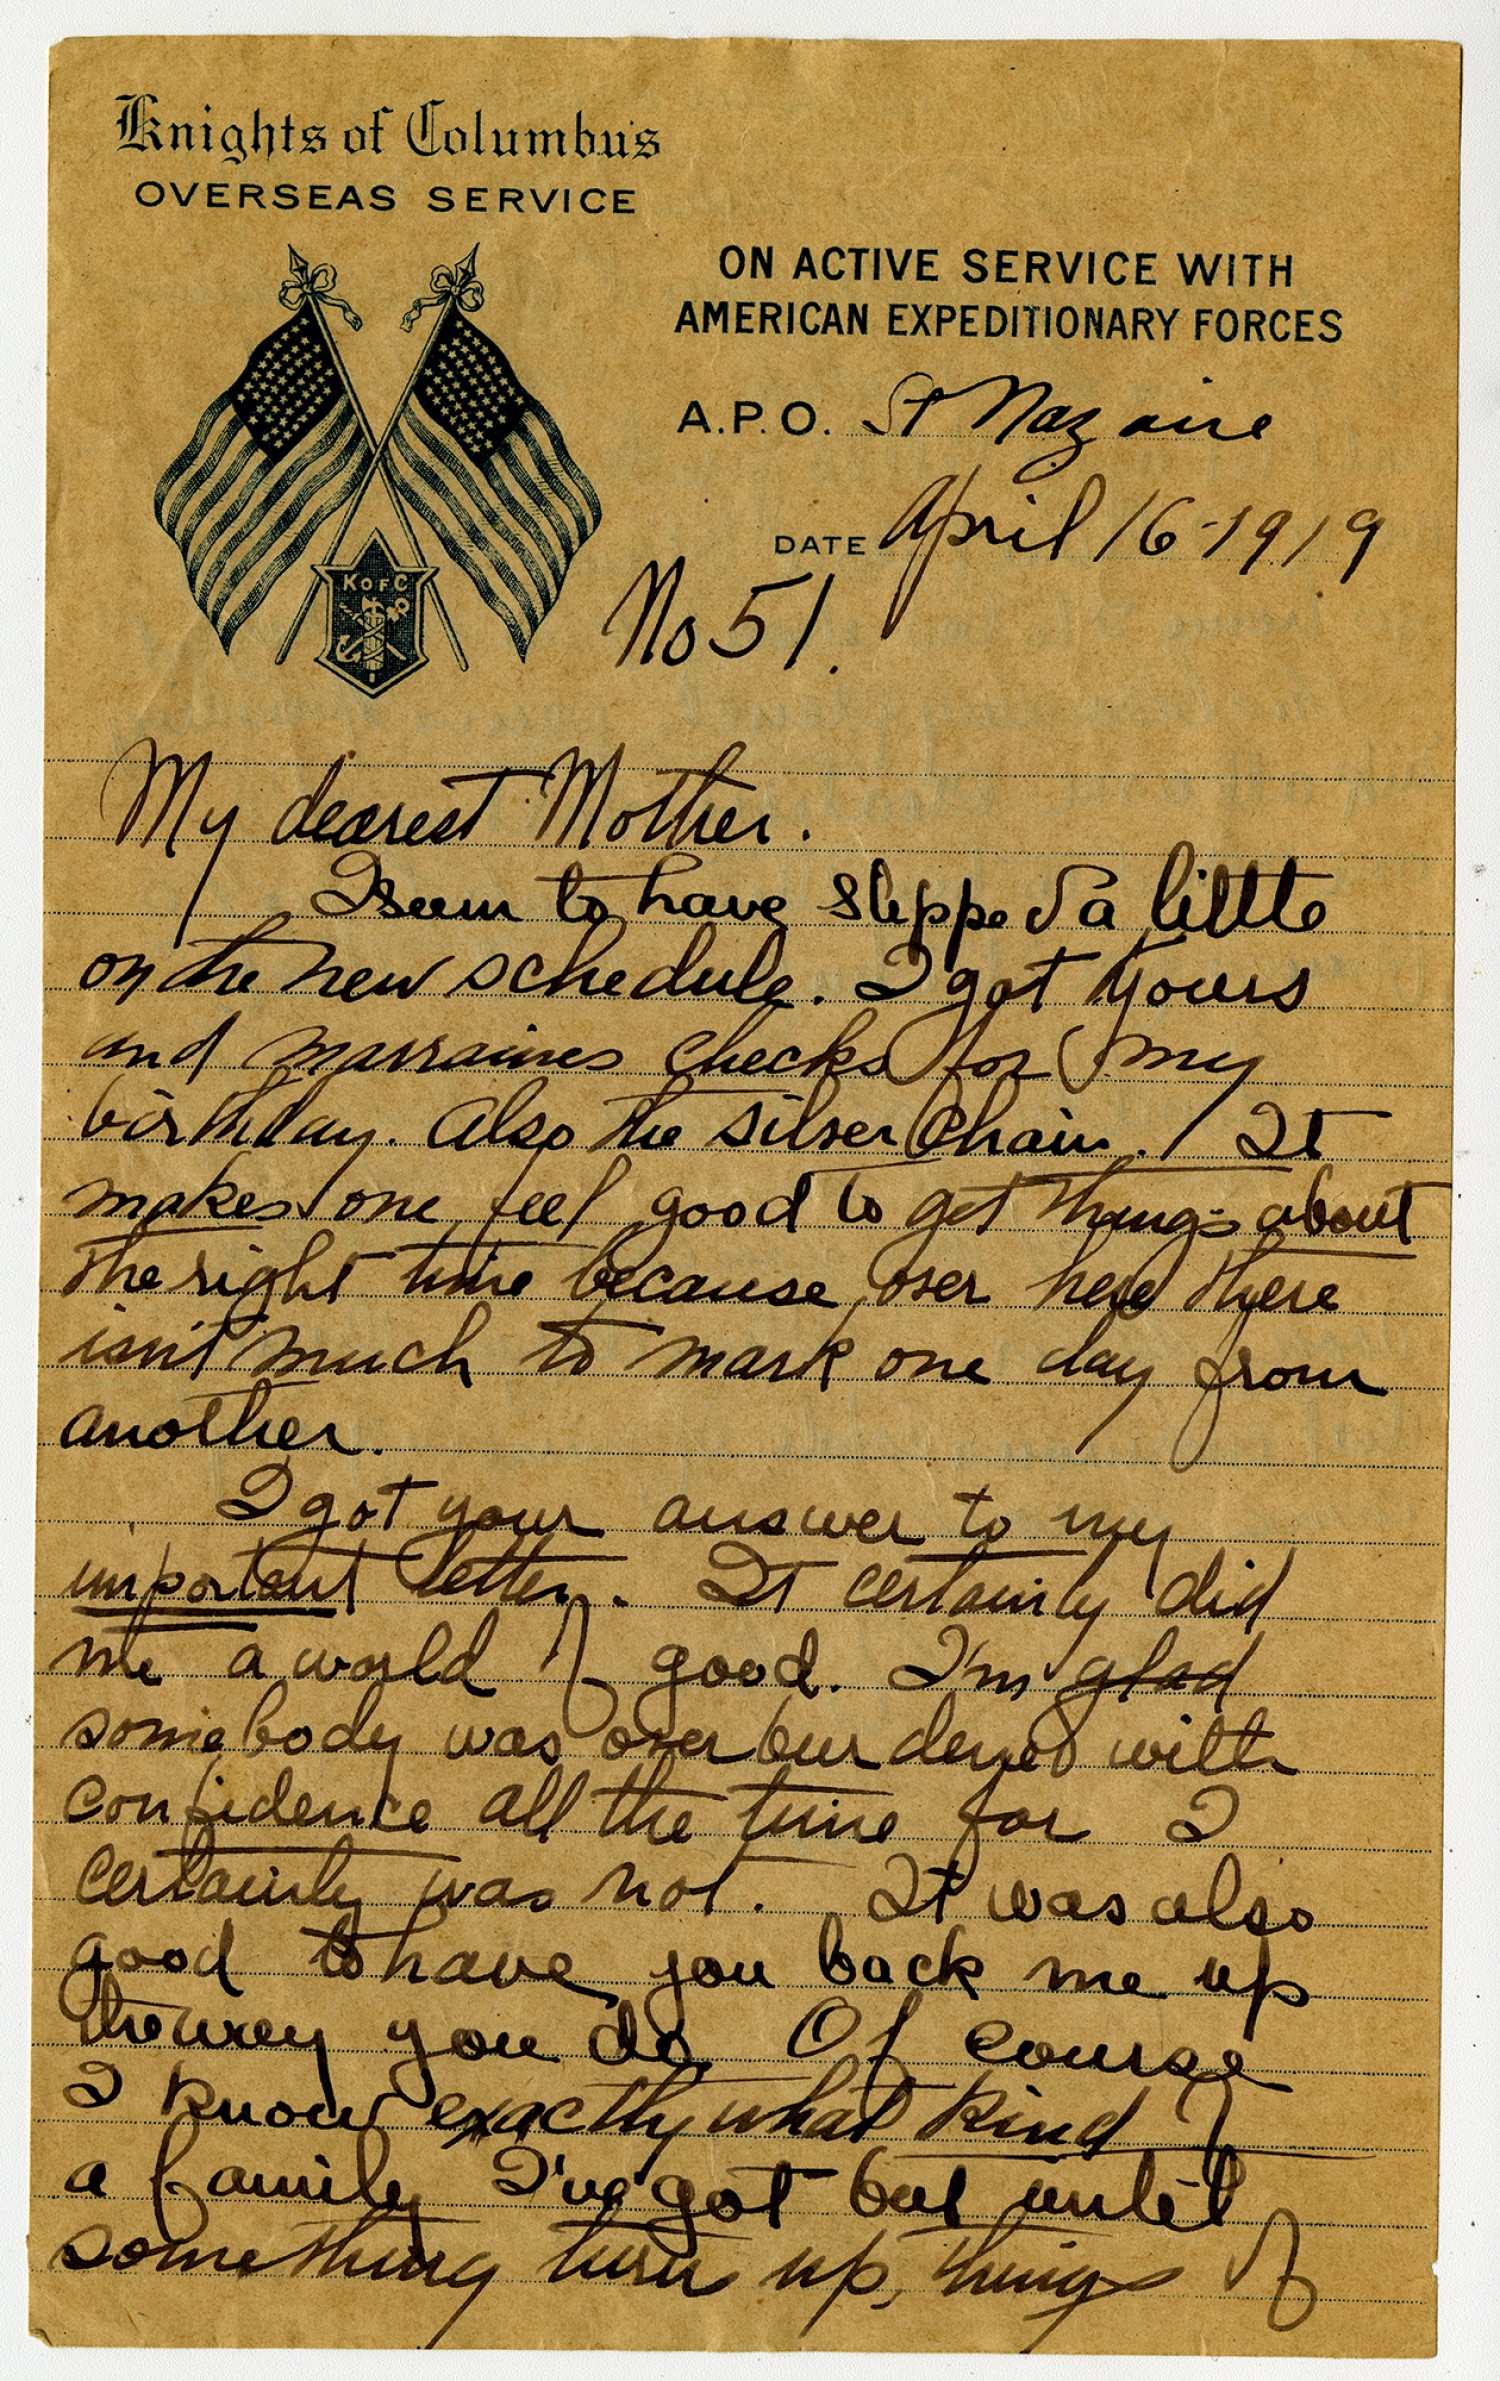 Knights of Columbus
OVERSEAS SERVICE
ON ACTIVE SERVICE WITH
AMERICAN EXPEDITIONARY FORCES
A.P.O. St Nazaire
DATE April 16-1919
K OF C
No 51.
My dearest Mother.
I seem to have slipped a little
on the new schedule. I got yours
and marraines checks for my
birthday. Also the silver chain. It
makes one feel good to get things about
the right time because over here there
isn't much to mark one day from
another.
I got your answer to my
important letter. It certainly did
me a world of good. I'm glad
somebody was over burdened with
confidence all the time for I
certainly was not. It was also
good to have you back me up
the way you do Of course
I know exactly what kind of
a family I've got but until
something turns up, things of